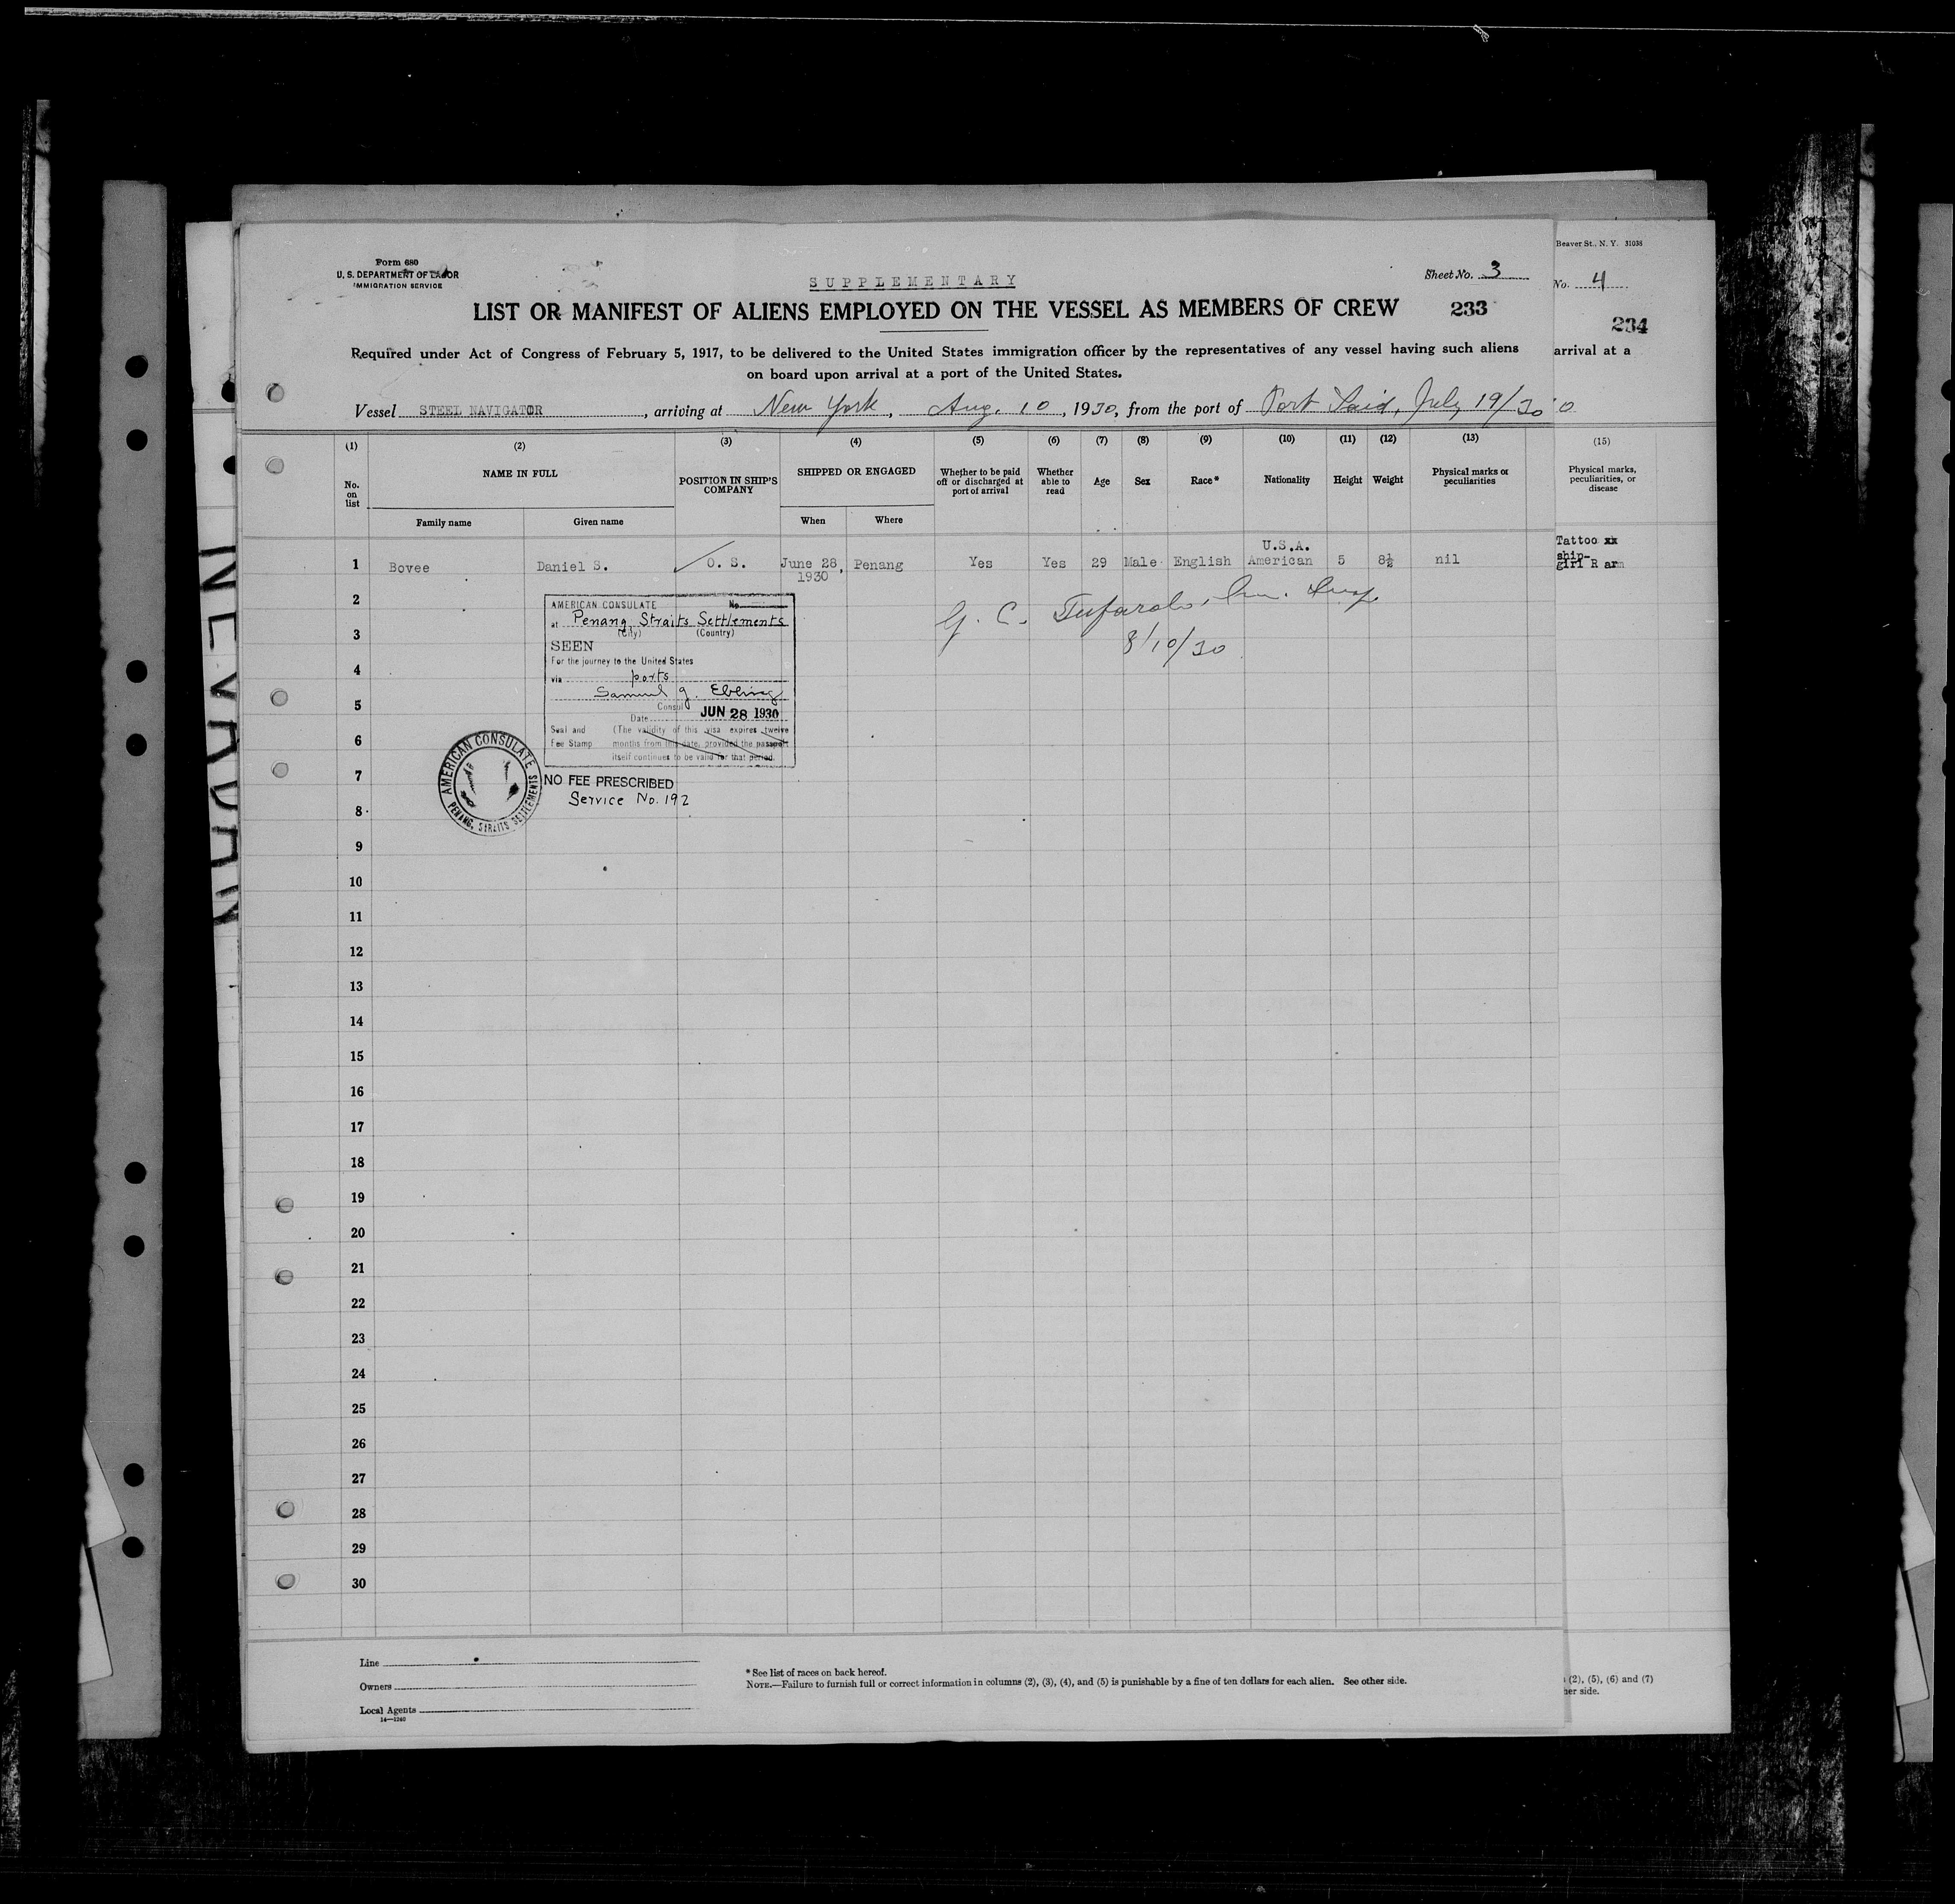 Form 680
U. S. DEPARTMENT OF LABOR
IMMIGRATION SERVICE
SUPPLEMENTARY
Sheet No. 3
LIST OR MANIFEST OF ALIENS EMPLOYED ON THE VESSEL AS MEMBERS OF CREW
233
Required under Act of Congress of February 5, 1917, to be delivered to the United States immigration officer by the representatives of any vessel having such aliens
on board upon arrival at a port of the United States.
Vessel STEEL NAVIGATOR, arriving at New York, Aug. 10, 1930, from the port of Port Said, July 19/30
(1) (2) (3) (4) (5) (6) (7) (8) (9) (10) (11) (12) (13)
No. on list
NAME IN FULL
Family name
Given name
POSITION IN SHIP'S COMPANY
SHIPPED OR ENGAGED
When
Where
Whether to be paid off or discharged at port of arrival
Whether able to read
Age
Sex
Race*
Nationality
Height
Weight
Physical marks or peculiarities
U.S.A.
1 Bovee Daniel S. O. S. June 28, 1930 Penang Yes Yes 29 Male English American 5 8½ nil
G. C. Imm. Insp.
8/10/30
AMERICAN CONSULATE No.
at Penang, Straits Settlements
(City) (Country)
SEEN
For the journey to the United States
via ports
Samuel G. Ebling
Consul
Date JUN 28 1930
Seal and Fee Stamp
(The validity of this visa expires twelve
months from this date, provided the passport
itself continues to be valid for that period.
AMERICAN CONSULATE
PENANG, STRAITS SETTLEMENTS
NO FEE PRESCRIBED
Service No. 192
2
3
4
5
6
7
8
9
10
11
12
13
14
15
16
17
18
19
20
21
22
23
24
25
26
27
28
29
30
Line
Owners
Local Agents
14—1240
* See list of races on back hereof.
NOTE.—Failure to furnish full or correct information in columns (2), (3), (4), and (5) is punishable by a fine of ten dollars for each alien. See other side.
Beaver St., N. Y. 31038
No. 4
234
arrival at a
0
(15)
Physical marks,
peculiarities, or
disease
Tattoo xx
ship-
girl R arm
(2), (5), (6) and (7)
her side.